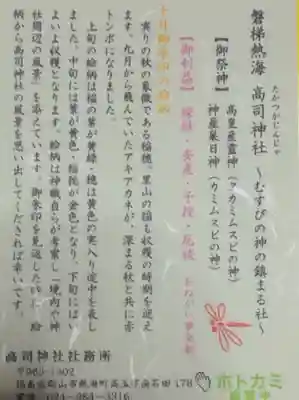 たかつかじんじゃ
磐梯熱海 高司神社 ~むすびの神の鎮まる社~
【御祭神】 高皇産靈神(タカミムスビの神)
神皇産巣日神(カミムスビの神)
【御利益】 縁結・安産・子授
実りの秋の象徴である稲穂。里山の稲も収穫の時期を迎え
ます。九月から飛んでいたアキアカネが、深まる秋と共に赤
トンボになりました。
上旬の絵柄は稲の葉が黄緑・穂は黄色の実入り途中を表し
ました。中旬には葉が黄色・稲穂が金色となり、下旬にはい
よいよ収穫となります。絵柄は神職自らが考案し「境内や神
社周辺の風景」を添えています。御朱印を見返したいに、絵
柄から高司神社の風景を思い出してくだされば幸いです。
高司神社社務所
〒963-1302
福島県郡山市熱海町高玉字南石畑178
ホトカミ